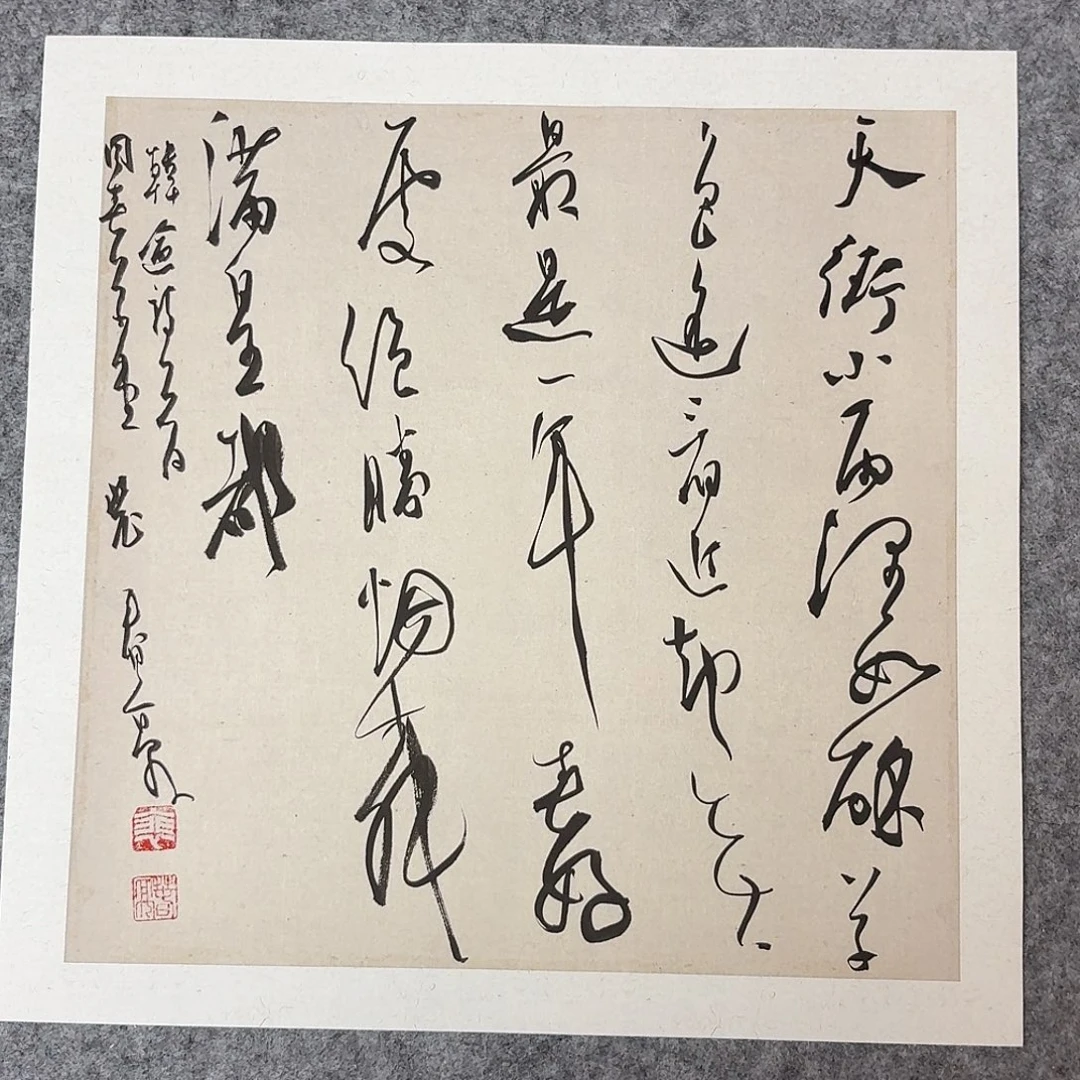 天街小雨潤如酥草
色遙看近却無
最是一年春好
處絕勝烟柳
滿皇都
韓愈詩